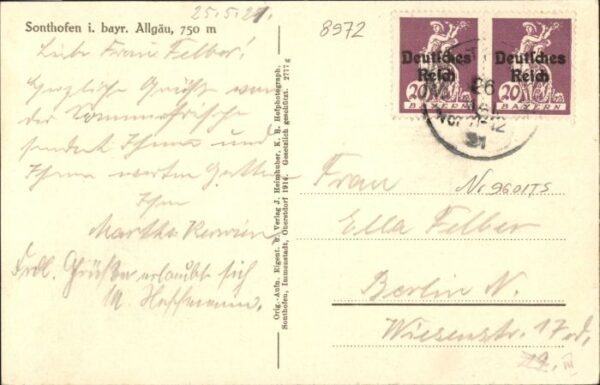 Sonthofen i. bayr. Allgäu, 750 m
25.5.21.
8972
Liebe Frau Felber!
Herzliche Grüße von
der Sommerfrische
sendet Ihnen und
Ihrem werten Gatten
Ihre
Martha
Frdl. Grüße erlaubt sich
M. Hoffmann.
Orig.-Aufn. Eigent. & Verlag J. Heimhuber, K. B. Hofphotograph,
Sonthofen, Immenstadt, Oberstdorf 1914. Gesetzlich geschützt. 2777 g
Deutsches
Reich
20
BAYERN
Deutsches
Reich
20
BAYERN
26
Frau
No 9601TS
Ella Felber
Berlin N.
Wiesenstr. 17 od.
29. III